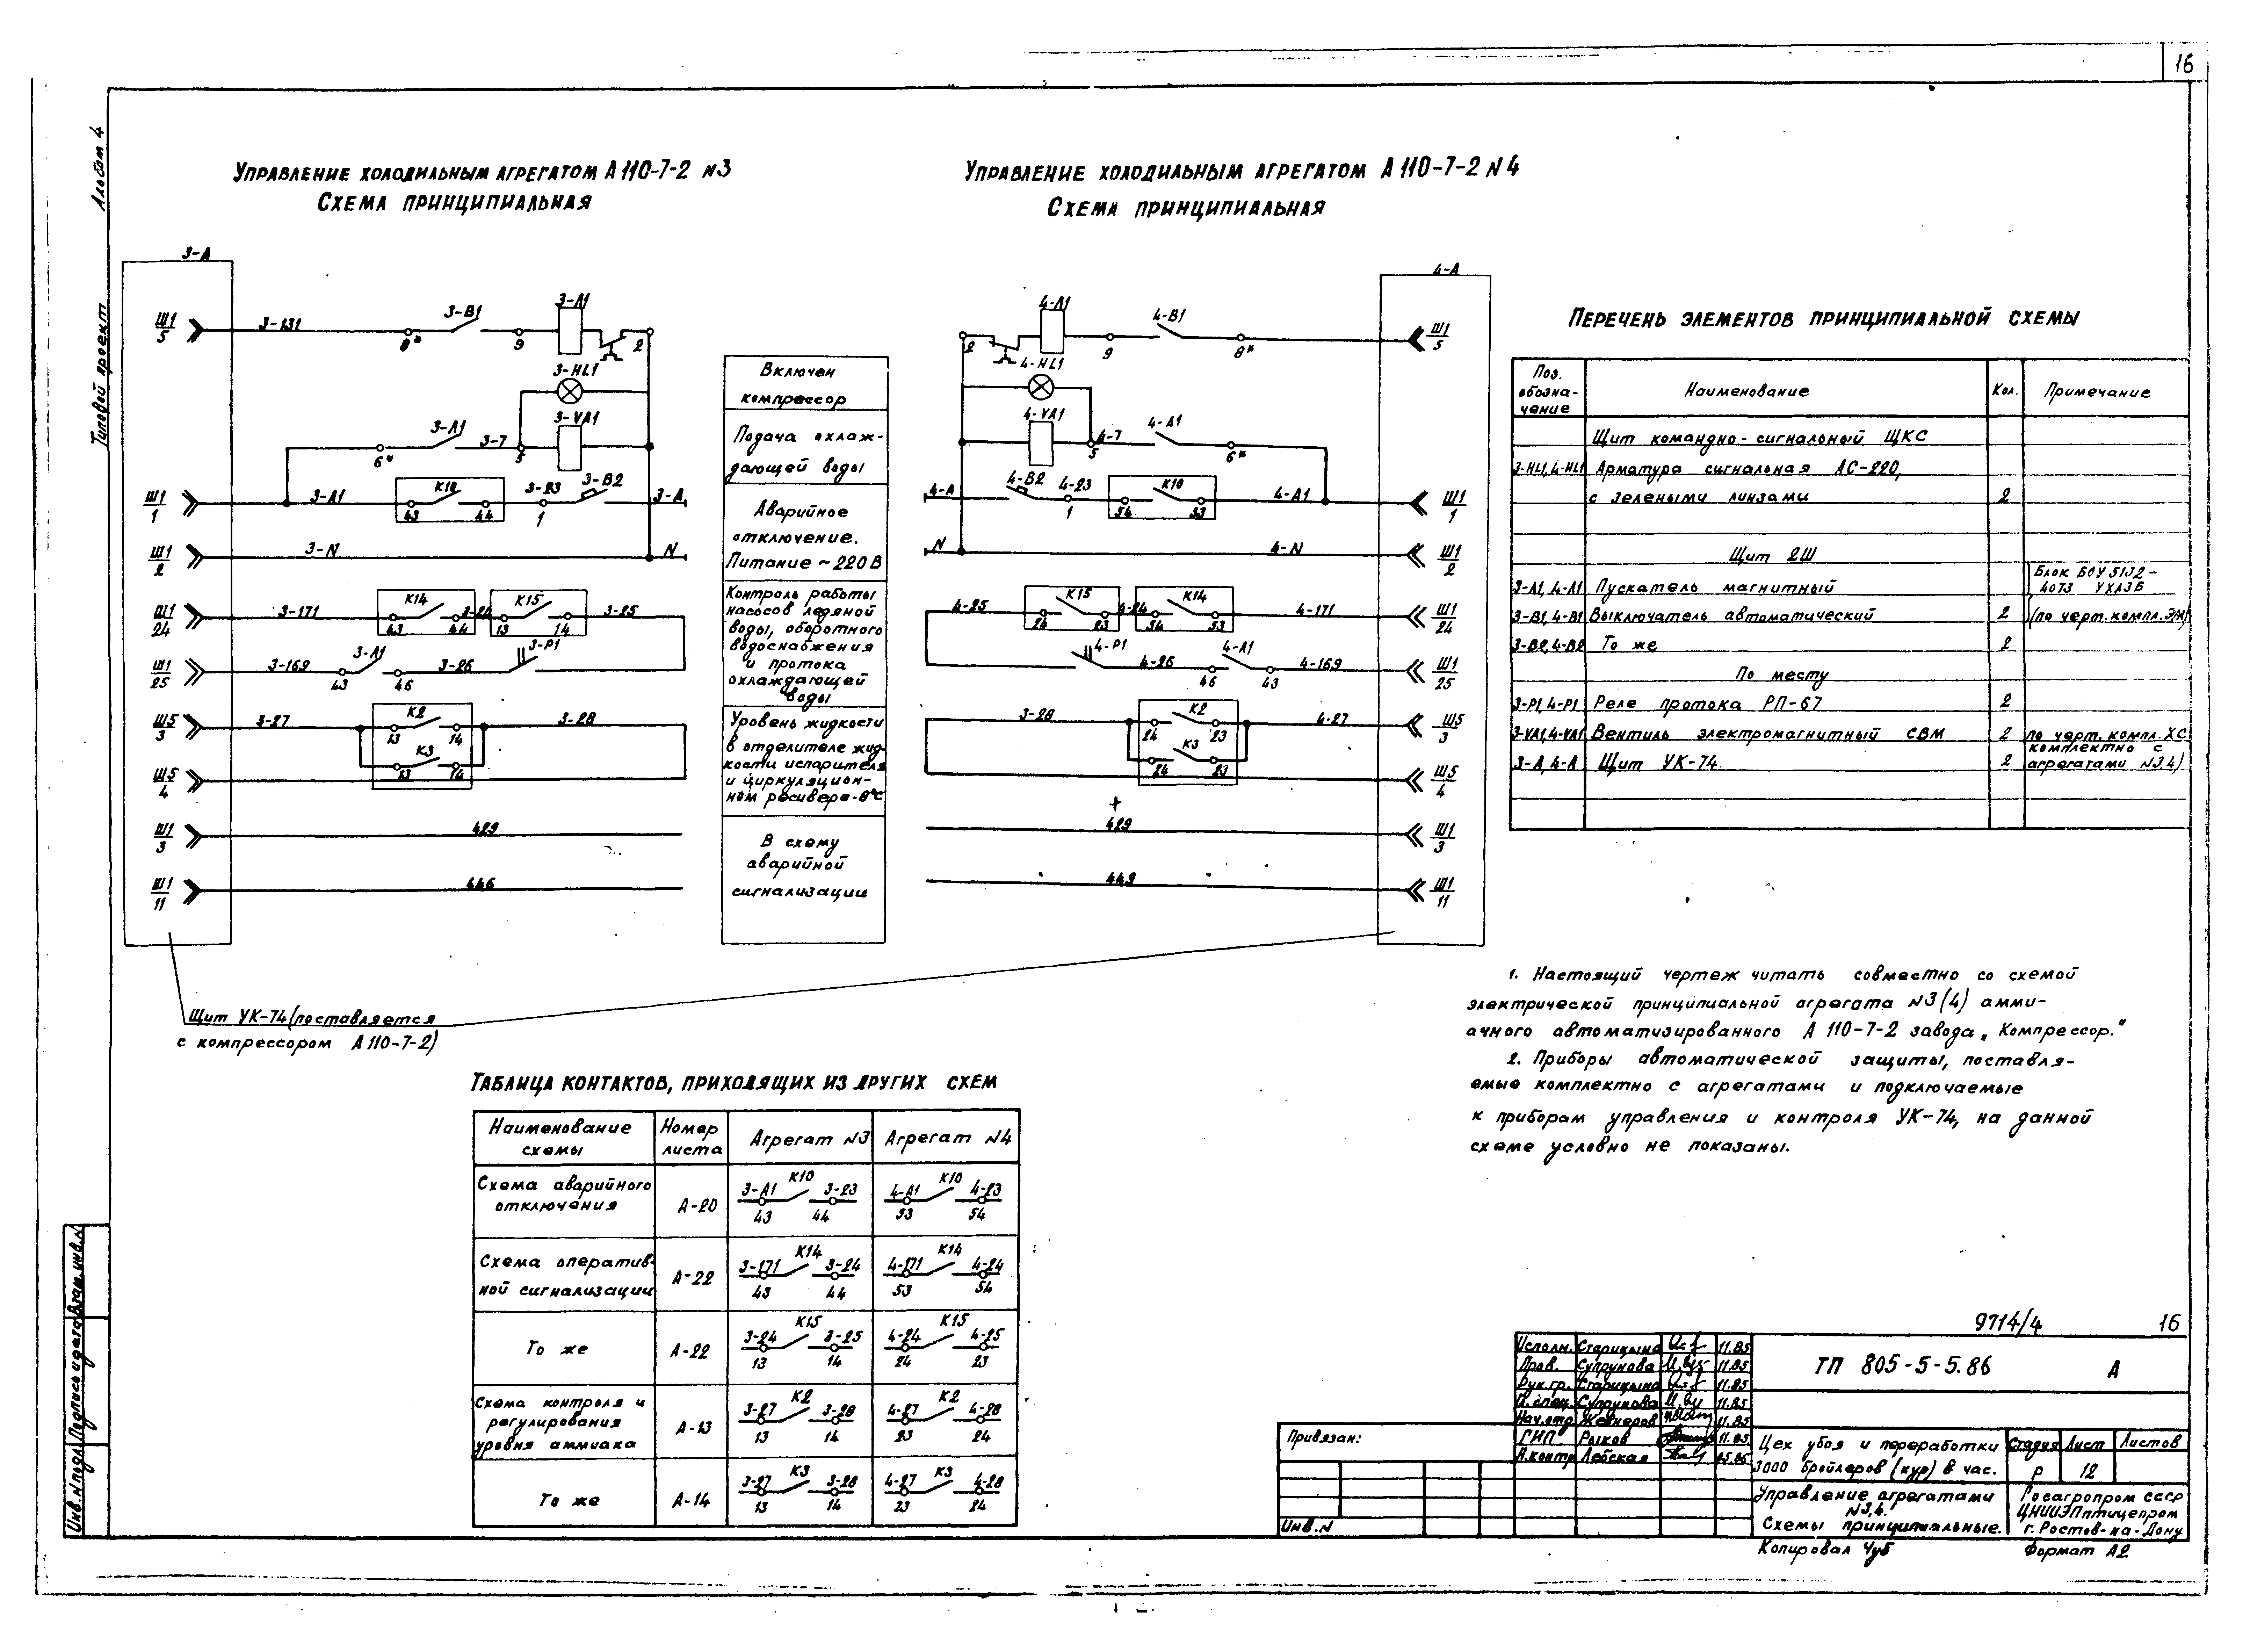 16
Альбом 4
Типовой проект
Управление холодильным агрегатом А 110-7-2 N3
Схема принципиальная
Управление холодильным агрегатом А 110-7-2 N4
Схема принципиальная
3-А
Ш1
5
3-131
8*
3-В1
9
3-А1
2
3-HL1
3-А1
3-7
6*
5
3-VA1
Ш1
1
3-А1
К10
43
44
3-23
1
3-В2
3-А
Ш1
2
3-N
N
Ш1
24
3-171
К14
43
44
3-24
К15
13
14
3-25
Ш1
25
3-169
3-А1
43
46
3-26
3-Р1
Ш5
3
3-27
К2
13
14
3-28
К3
13
14
Ш5
4
Ш1
3
429
Ш1
11
446
Включен
компрессор
Подача охлаж-
дающей воды
Аварийное
отключение.
Питание ~ 220 В
Контроль работы
насосов ледяной
воды, оборотного
водоснабжения
и протока
охлаждающей
воды
Уровень жидкости
в отделителе жид-
кости испарителя
и циркуляцион-
ном ресивере-8°С
В схему
аварийной
сигнализации
4-А
2
4-А1
9
4-В1
8*
Ш1
5
4-HL1
4-VA1
4-7
5
4-А1
6*
4-А
4-В2
4-23
1
К10
54
53
4-А1
Ш1
1
N
4-N
Ш1
2
4-25
К15
24
23
4-24
К14
54
53
4-171
Ш1
24
4-Р1
4-26
4-А1
46
43
4-169
Ш1
25
3-28
К2
24
23
4-27
К3
24
23
Ш5
3
Ш5
4
429
Ш1
3
449
Ш1
11
Щит УК-74 (поставляется
с компрессором А 110-7-2)
Перечень элементов принципиальной схемы
Поз. обозна-чение Наименование Кол. Примечание
Щит командно-сигнальный ЩКС
3-HL1, 4-HL1 Арматура сигнальная АС-220,
с зелеными линзами 2
Щит 2Ш
3-А1, 4-А1 Пускатель магнитный Блок БОУ 5132-4073 УХЛ3Б
3-В1, 4-В1 Выключатель автоматический 2 (по черт. компл. ЭМ)
3-В2, 4-В2 То же 2
По месту
3-Р1, 4-Р1 Реле протока РП-67 2
3-VA1, 4-VA1 Вентиль электромагнитный СВМ 2 по черт. компл. ХС
3-А, 4-А Щит УК-74 2 комплектно с агрегатами N3,4)
1. Настоящий чертеж читать совместно со схемой
электрической принципиальной агрегата N3(4) амми-
ачного автоматизированного А 110-7-2 завода „Компрессор."
2. Приборы автоматической защиты, поставля-
емые комплектно с агрегатами и подключаемые
к приборам управления и контроля УК-74, на данной
схеме условно не показаны.
Таблица контактов, приходящих из других схем
Наименование схемы Номер листа Агрегат N3 Агрегат N4
Схема аварийного отключения А-20 3-А1 К10 3-23 43 44 4-А1 К10 4-23 53 54
Схема оператив-ной сигнализации А-22 3-171 К14 3-24 43 44 4-171 К14 4-24 53 54
То же А-22 3-24 К15 3-25 13 14 4-24 К15 4-25 24 23
Схема контроля и регулирования уровня аммиака А-13 3-27 К2 3-28 13 14 4-27 К2 4-28 23 24
То же А-14 3-27 К3 3-28 13 14 4-27 К3 4-28 23 24
9714/4 16
Исполн. Старицына 11.85
Пров. Супрунова 11.85
Рук.гр. Старицына 11.85
Гл.спец. Супрунова 11.85
Нач.отд. Жевнеров 11.85
ГИП Рыков 11.85
Н.контр Лебская
ТП 805-5-5.86 А
Цех убоя и переработки
3000 бройлеров (кур) в час.
Стадия Лист Листов
Р 12
Управление агрегатами
N3,4.
Схемы принципиальные.
Госагропром СССР
ЦНИИЭПптицепром
г. Ростов-на-Дону
Привязан:
Инв.N
Копировал Чуб
Формат А2
Инв.N подл.
Подпись и дата
Взам.инв.N